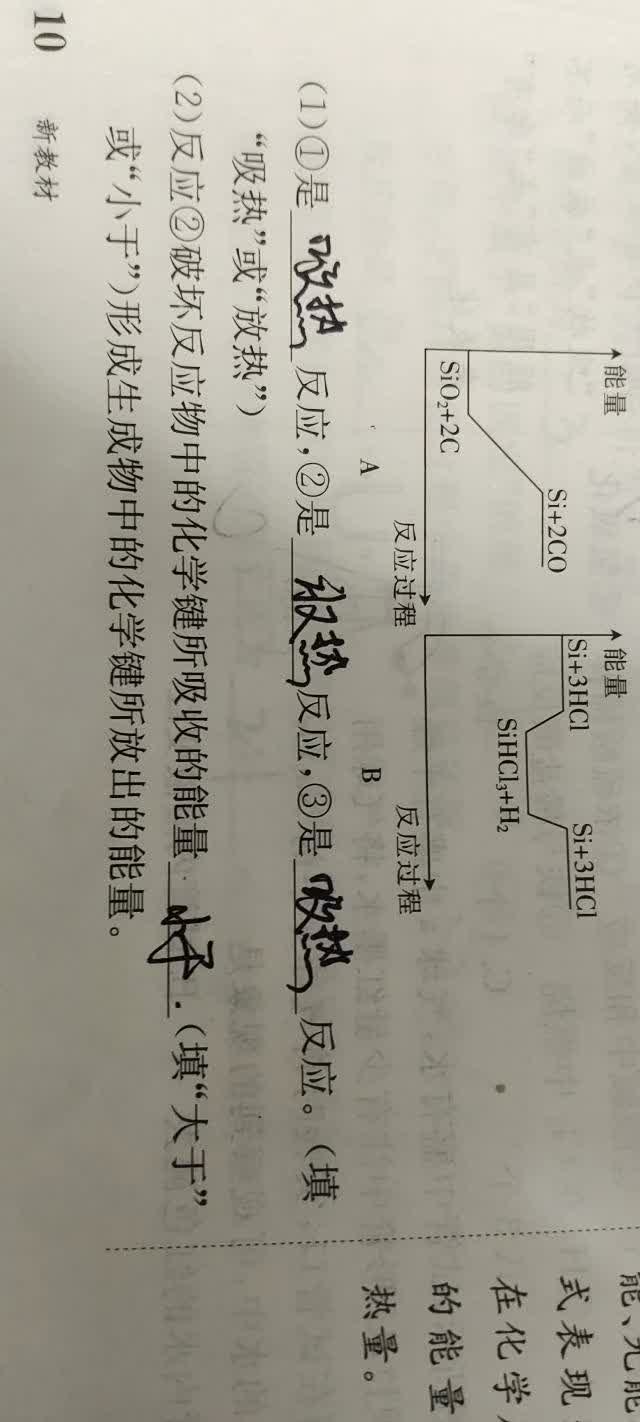 能量
Si+2CO
SiO₂+2C
反应过程
A
能量
Si+3HCl
Si+3HCl
SiHCl₃+H₂
反应过程
B
(1)①是 吸热 反应,②是 放热 反应,③是 吸热 反应。(填
“吸热”或“放热”)
(2)反应②破坏反应物中的化学键所吸收的能量 小于 .(填“大于”
或“小于”)形成生成物中的化学键所放出的能量。
10 新教材
能、光能
式表现
在化学
的能量
热量。